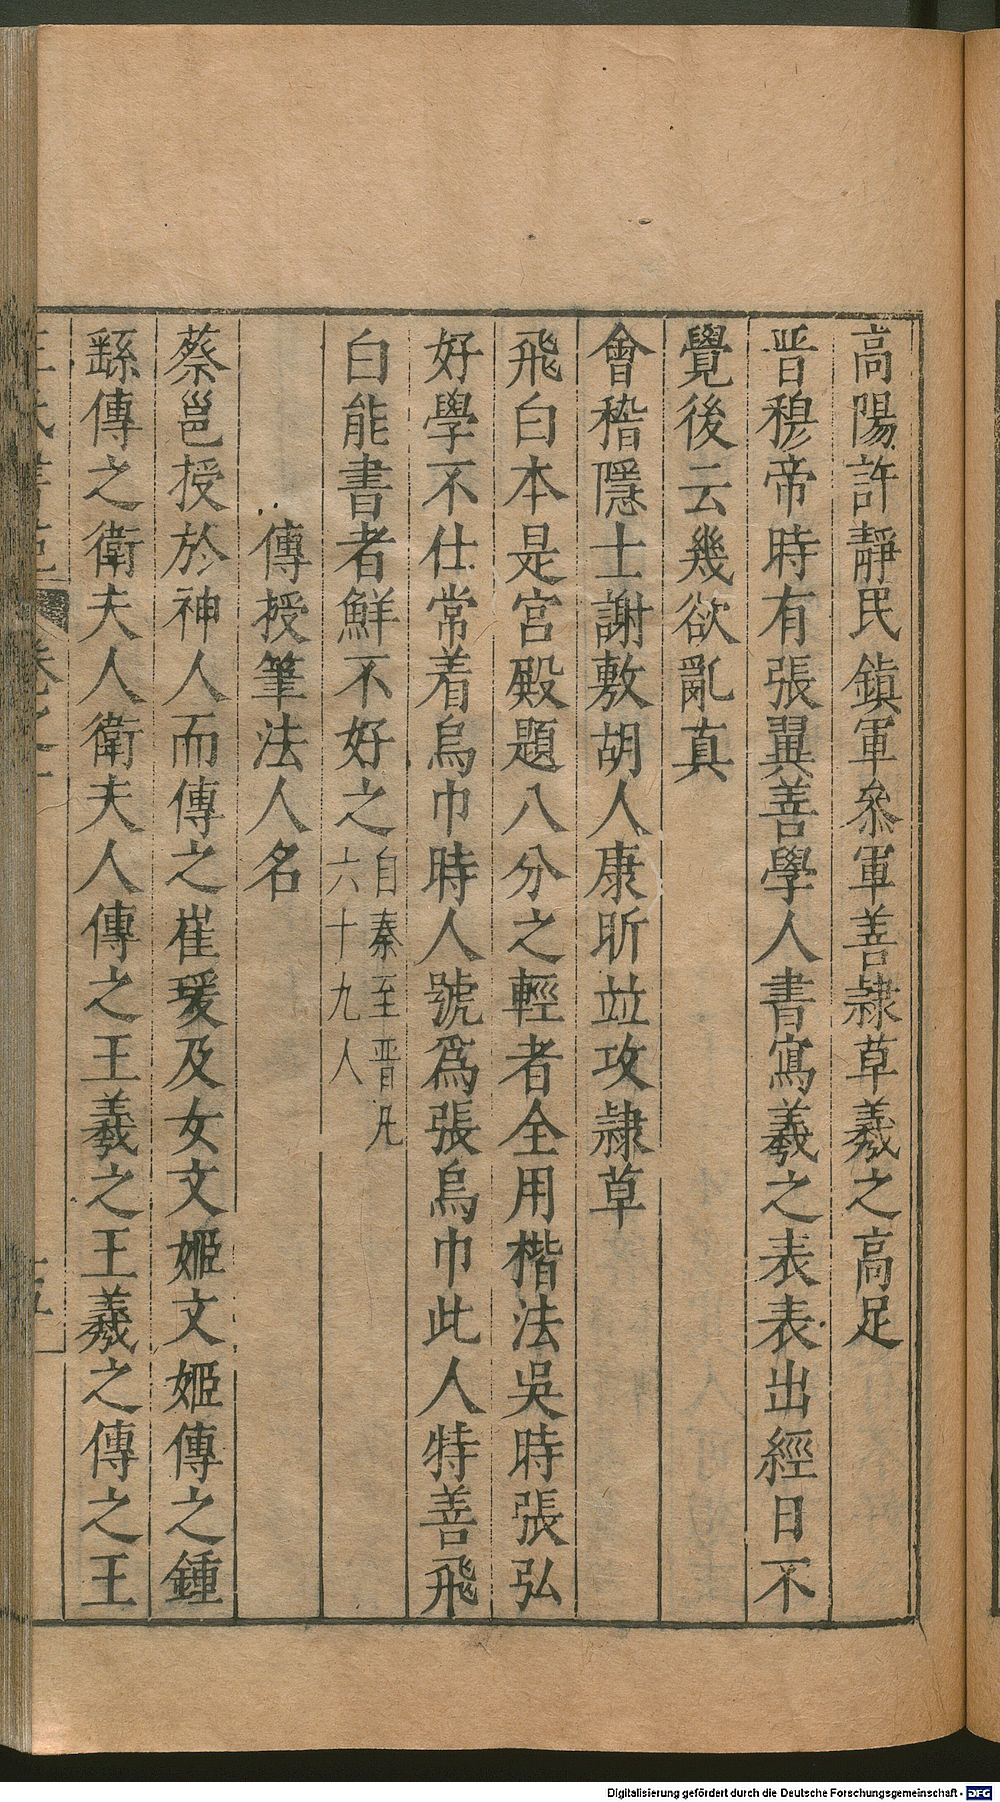 高陽許靜民鎮軍叅軍善隷草羲之高足
晋穆帝時有張翼善學人書寫羲之表表出經日不
覺後云幾欲亂真
會稽隱士謝敷胡人康昕並攻隷草
飛白本是宮殿題八分之輕者全用楷法吳時張弘
好學不仕常着烏巾時人號爲張烏巾此人特善飛
白能書者鮮不好之自秦至晋凡
六十九人
傳授筆法人名
蔡邕授於神人而傳之崔瑗及女文姬文姬傳之鍾
繇傳之衛夫人衛夫人傳之王羲之王羲之傳之王
Digitalisierung gefördert durch die Deutsche Forschungsgemeinschaft - DFG